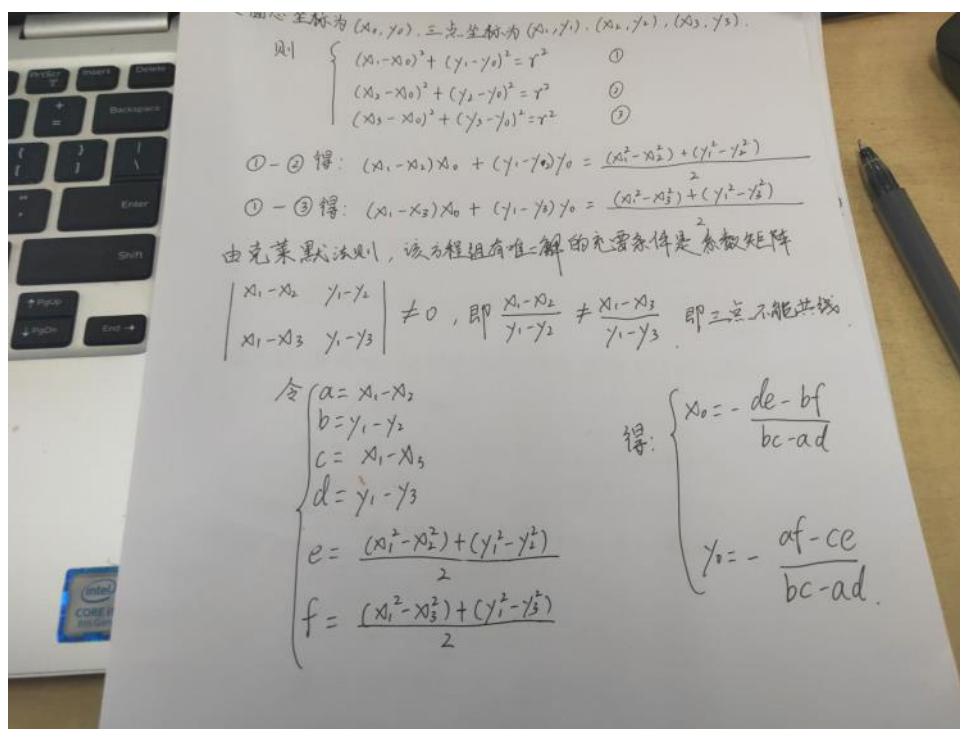 圆心坐标为(x₀, y₀). 三点坐标为(x₁, y₁). (x₂, y₂), (x₃, y₃).
则 { (x₁-x₀)² + (y₁-y₀)² = r² ①
(x₂-x₀)² + (y₂-y₀)² = r² ②
(x₃-x₀)² + (y₃-y₀)² = r² ③
①-② 得: (x₁-x₂)x₀ + (y₁-y₂)y₀ = ((x₁²-x₂²)+(y₁²-y₂²))/2
①-③ 得: (x₁-x₃)x₀ + (y₁-y₃)y₀ = ((x₁²-x₃²)+(y₁²-y₃²))/2
由克莱默法则, 该方程组有唯一解的充要条件是系数矩阵
| x₁-x₂ y₁-y₂ |
| x₁-x₃ y₁-y₃ | ≠ 0, 即 (x₁-x₂)/(y₁-y₂) ≠ (x₁-x₃)/(y₁-y₃). 即三点不能共线
令 { a = x₁-x₂
b = y₁-y₂
c = x₁-x₃
d = y₁-y₃
e = ((x₁²-x₂²)+(y₁²-y₂²))/2
f = ((x₁²-x₃²)+(y₁²-y₃²))/2
得: { x₀ = - (de-bf)/(bc-ad)
y₀ = - (af-ce)/(bc-ad).
PrtScr
Insert
Delete
+
=
Backspace
{
[
}
]
|
\
Enter
Shift
PgUp
PgDn
End
intel
CORE i
8th Gen